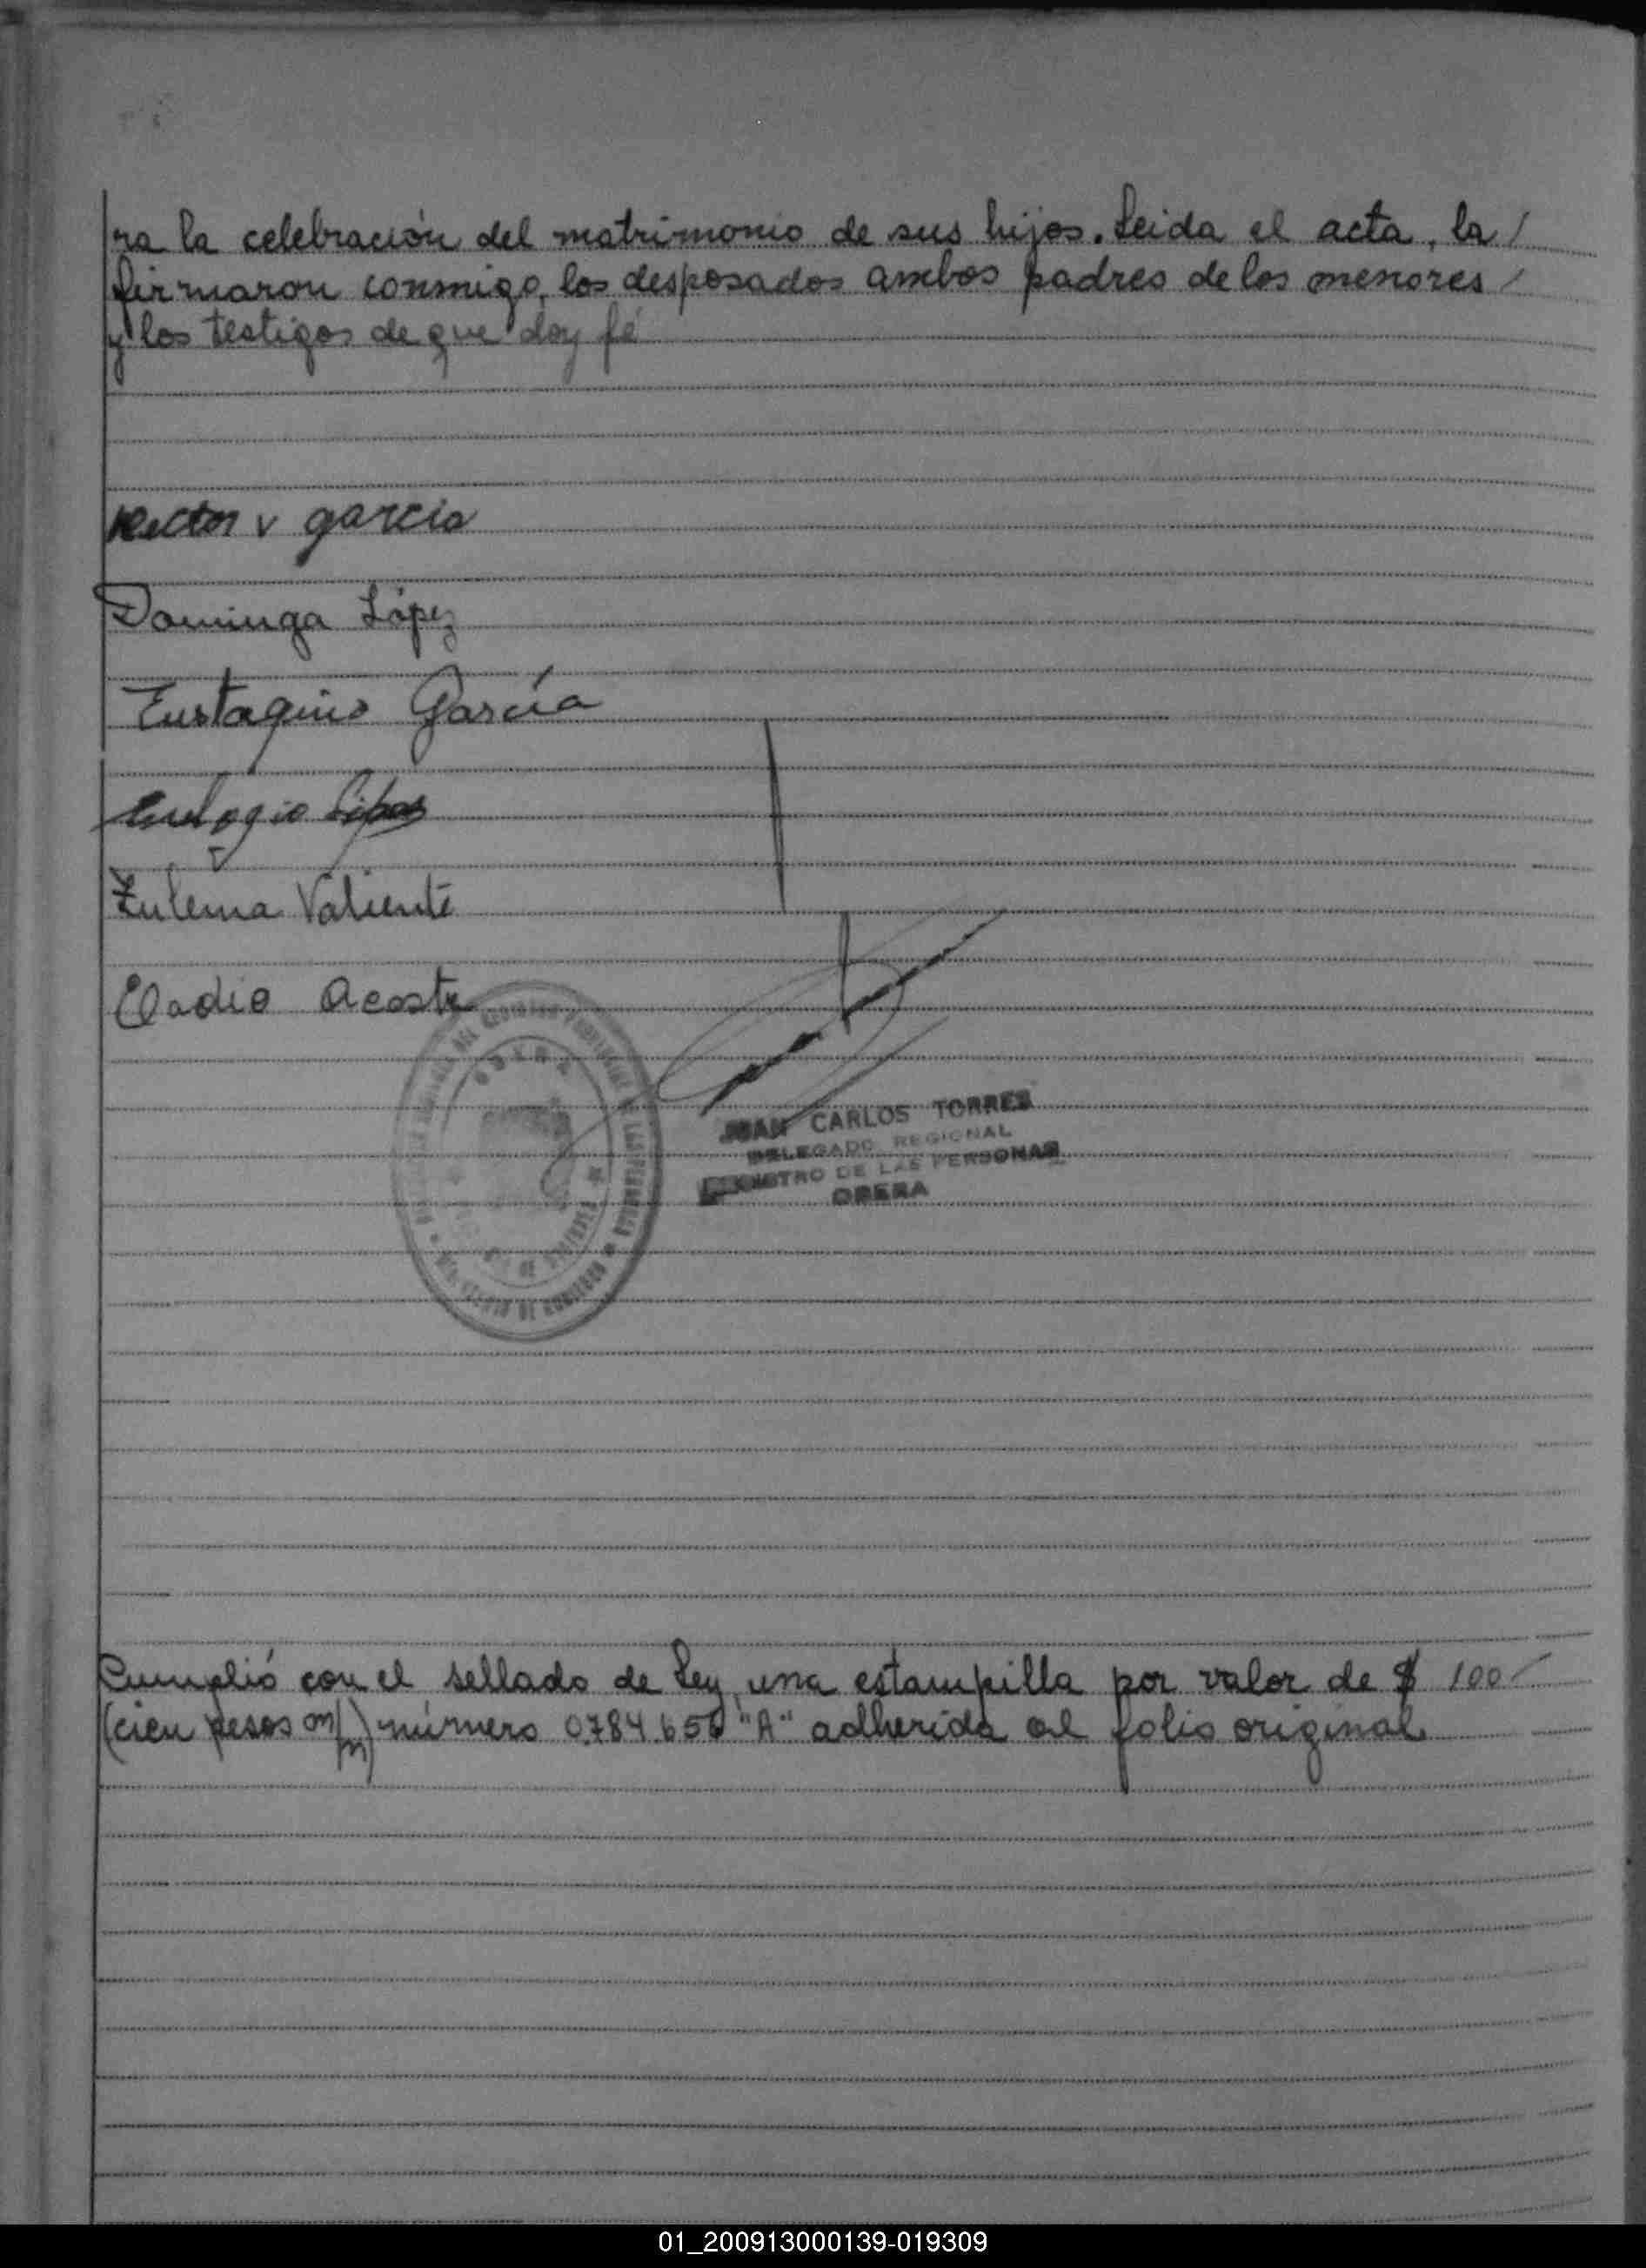 ra la celebración del matrimonio de sus hijos. Leida el acta, la /
firmaron conmigo, los desposados ambos padres de los menores /
y los testigos de que doy fé
Hector v garcia
Dominga López
Eustaquio García
Eulogio
Zulema Valiente
Eladio Acosta
JUAN CARLOS TORRES
DELEGADO REGIONAL
REGISTRO DE LAS PERSONAS
OBERA
OBERA
DE LAS PERSONAS
MINISTERIO DE GOBIERNO
Cumplió con el sellado de Ley, una estampilla por valor de $ 100
(cien pesos m/n) número 0784.656 "A" adherida al folio original
01_200913000139-019309